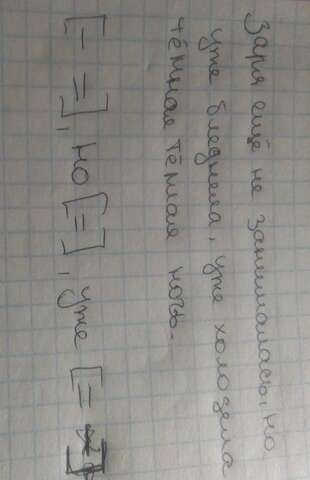 Заря ещё не занималась, но
уже бледнела, уже холодела
тёмная тёплая ночь.
[— =], но [=], уже [=